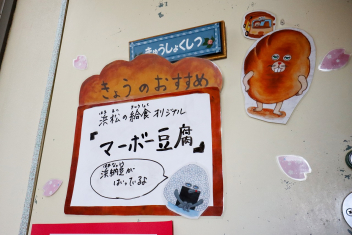 きゅうしょくしつ
きょうのおすすめ
浜松の給食オリジナル
『マーボー豆腐』
浜納豆が
はいってるよ